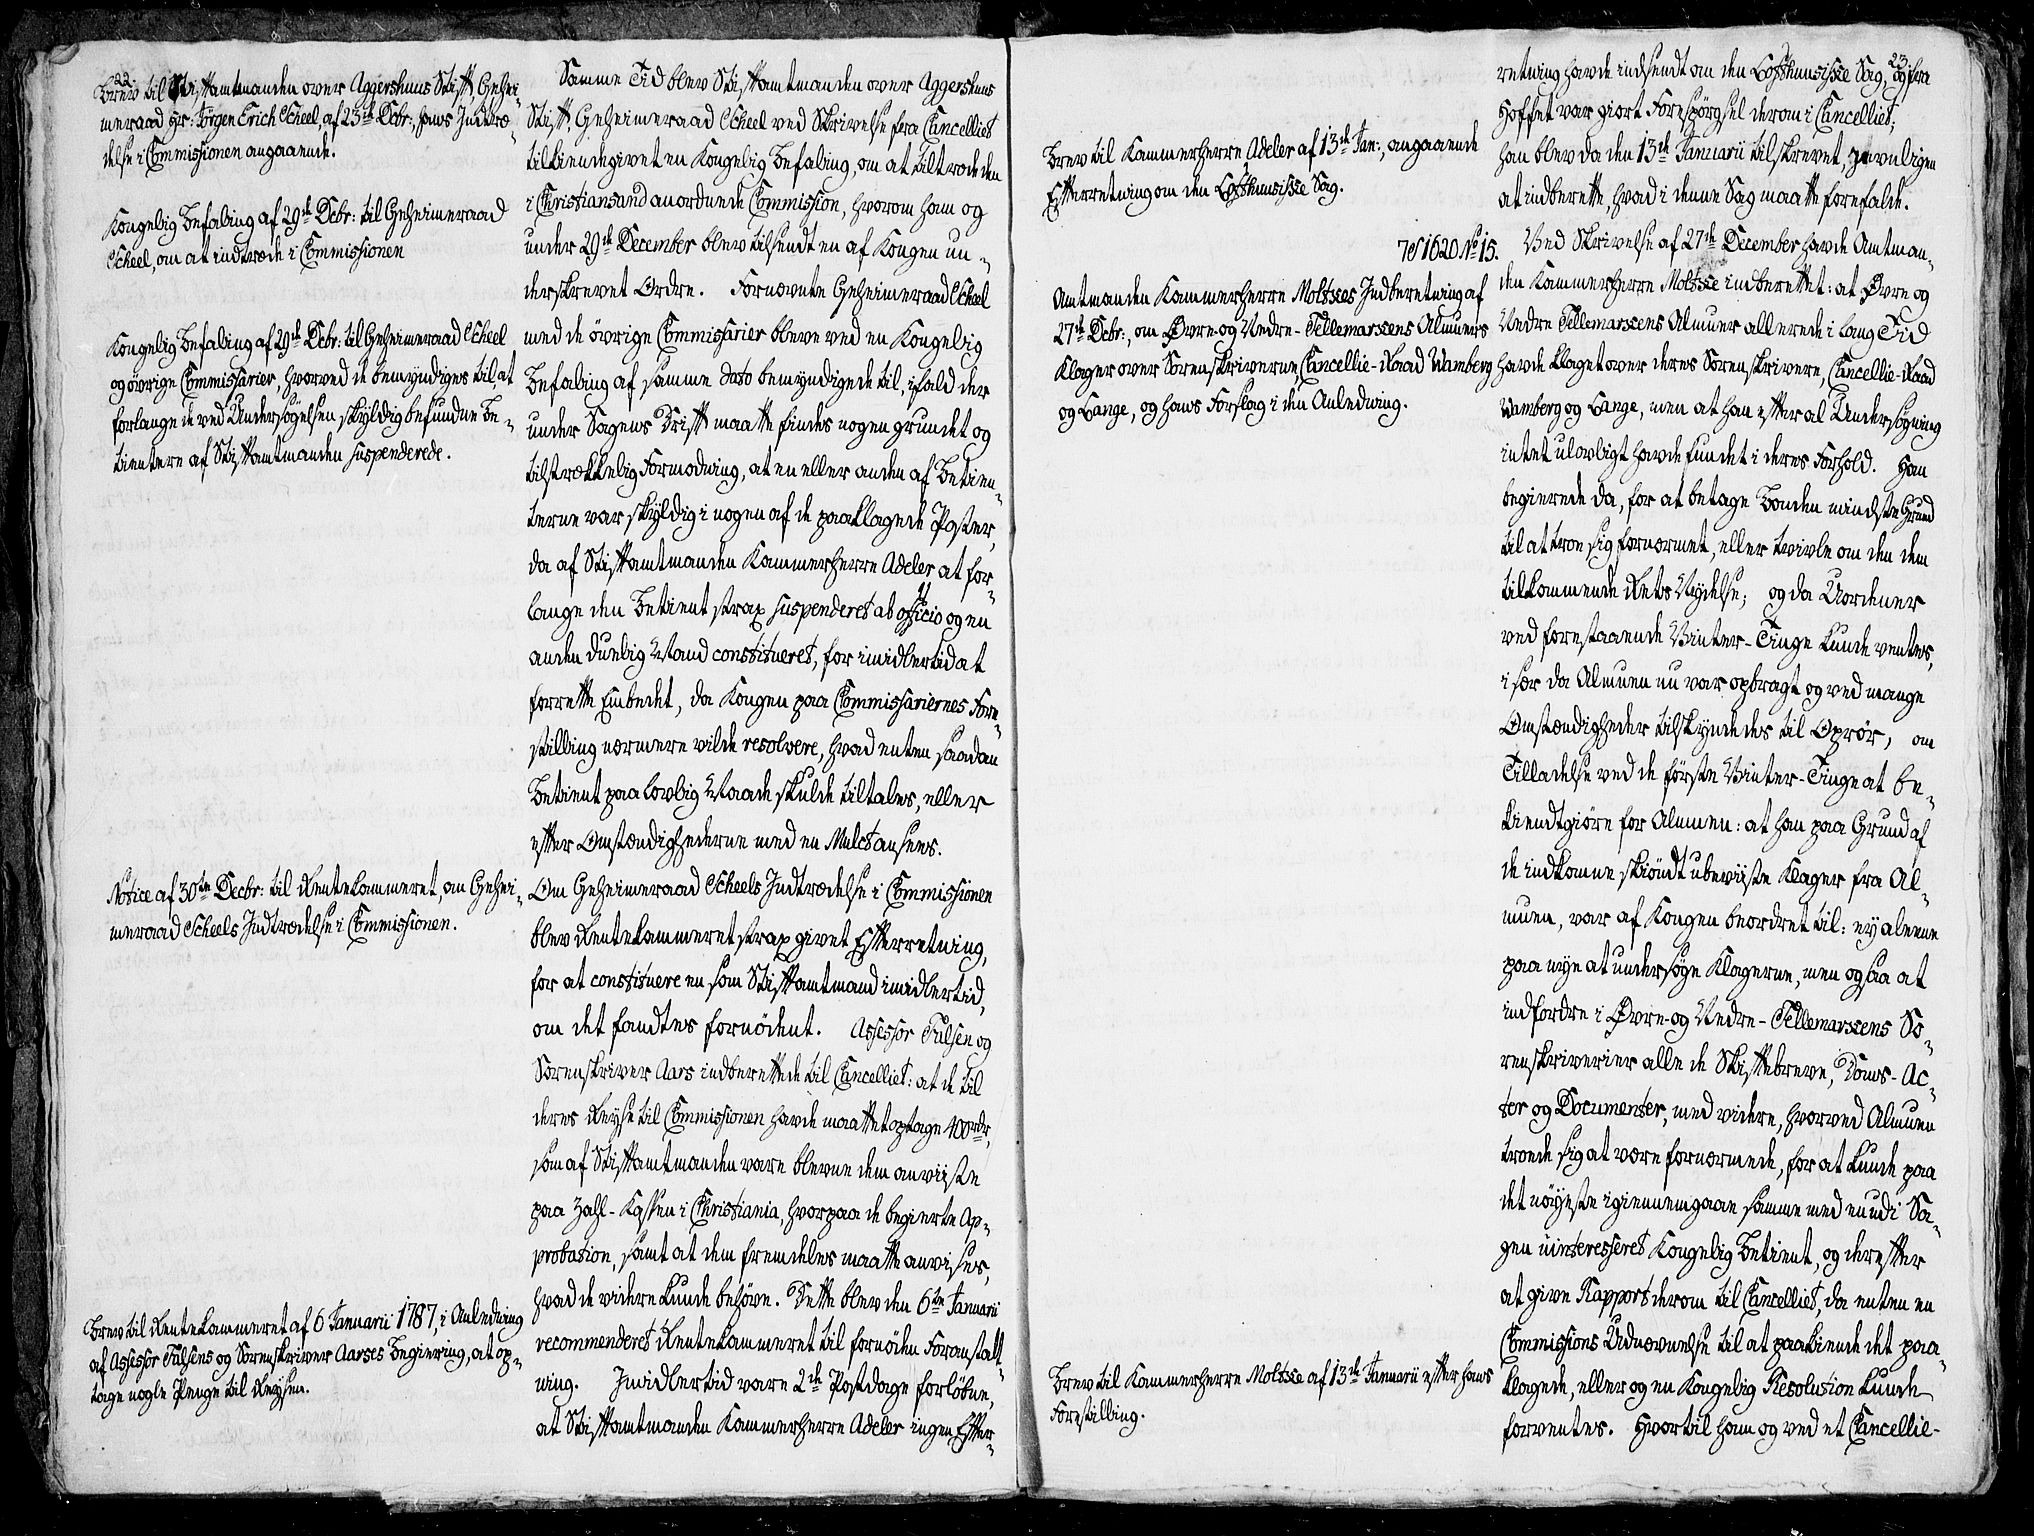 22.
Brev til Stiftamtmanden over Aggershuus Stift, Gehei-
meraad Hr: Jørgen Erich Scheel, af 23de Decbr:, hans Indtræ-
delse i Commissionen angaaende.
Kongelig Befaling af 29de Decbr: til Geheimeraad
Scheel, om at indtræde i Commissionen
Kongelig Befaling af 29de Decbr: til Geheimeraad Scheel
og övrige Commissarier, hvorved de bemyndiges til, at
forlange de ved Undersögelsen skyldig befundne Be-
tientere af Stiftamtmanden suspenderede.
Notice af 30te Decbr: til Rentekammeret, om Gehei-
meraad Scheels Indtrædelse i Commissionen.
Brev til Rentekammeret af 6 Januarii 1787, i Anledning
af Assessor Tulsens og Sorenskriver Aarses Begiering, at op-
tage nogle Penge til Reysen.
Samme Tid blev Stiftamtmanden over Aggershuus
Stift, Geheimeraad Scheel ved Skrivelse fra Cancelliet
tilkiendegivet en Kongelig Befaling, om at tiltræde den
i Christiansand anordnede Commission, hvorom ham og
under 29de December blev tilsendt en af Kongen un-
derskrevet Ordre. Fornævnte Geheimeraad Scheel
med de övrige Commissarier bleve ved en Kongelig
Befaling af samme dato bemyndigede til, ifald der
under Sagens Drift maatte findes nogen grundet og
tilstrækkelig Formodning, at en eller anden af Betien-
terne var skyldig i nogen af de paaklagede Poster,
da af Stiftamtmanden Kammerherre Adeler at for-
lange den Betient strax suspenderet ab officio og en
anden duelig Mand constitueret, for imidlertid at
forrette Embedet, da Kongen paa Commissariernes Fore-
stilling nærmere vilde resolvere, hvad enten saadan
Betient paa lovlig Maade skulde tiltales, eller
efter Omstændighederne med en Mulct ansees.
Om Geheimeraad Scheels Indtrædelse i Commissionen
blev Rentekammeret strax givet Efterretning,
for at constituere en som Stiftamtmand imidlertid,
om det fandtes fornödent. Assessor Tulsen og
Sorenskriver Aars indberettede til Cancelliet: at de til
deres Reyse til Commissionen havde maattet optage 400 rdr,
som af Stiftamtmanden vare blevne dem anviiste
paa Zahl-Kassen i Christiania, hvorpaa de begierte Ap-
probation, samt at dem fremdeles maatte anvises,
hvad de videre kunde behöve. Dette blev den 6te Januarii
recommenderet Rentekammeret til fornöden Foranstalt-
ning. Imidlertid vare 2de Postdage forlöbne,
at Stiftamtmanden Kammerherre Adeler ingen Efter-
23.
Brev til Kammerherre Adeler af 13de Jan:, angaaende
Efterretning om den Lofthuusiske Sag.
7de 1620 No 15.
Amtmanden Kammerherre Moltkes Indberetning af
27de Decbr:, om Øvre- og Nedre-Tellemarkens Almues
Klager over Sorenskriverne, Cancellie-Raad Wamberg
og Lange, og hans Forslag i den Anledning.
Brev til Kammerherre Moltke af 13de Januarii efter hans
Forestilling.
retning havde indsendt om den Lofthuusiske Sag, og fra
Hoffet var giort Forespörgsel derom i Cancelliet;
han blev da den 13de Januarii tilskrevet, jævnligen
at indberette, hvad i denne Sag maatte forefalde.
Ved Skrivelse af 27de December havde Amtman-
den Kammerherre Moltke indberettet: at Øvre og
Nedre Tellemarkens Almuer allerede i lang Tid
havde klaget over deres Sorenskrivere, Cancellie-Raad
Wamberg og Lange, men at han efter al Undersögning
intet ulovligt havde fundet i deres Forhold. Han
begierede da, for at betage Bonden mindste Grund
til at troe sig fornærmet, eller tvivle om den dem
tilkommende Rets Nydelse; og da Uordener
ved forestaaende Vinter-Tinge kunde ventes,
i sær da Almuen nu var opbragt og ved mange
Omstændigheder tilskyndedes til Oprör, om
Tilladelse ved de förste Vinter-Tinge at be-
kiendtgiöre for Almuen: at han paa Grund af
de indkomne skiöndt ubeviiste Klager fra Al-
muen, var af Kongen beordret til: ey aleene
paa nye at undersöge Klagerne, men ogsaa at
indfordre i Øvre- og Nedre-Tellemarkens So-
renskriverier alle de Skiftebreve, Doms-Ac-
ter og Documenter, med videre, hvorved Almuen
troede sig at være fornærmede, for at kunde paa
det nöyeste igiennemgaae samme med en udi Sa-
gen uinteresseret Kongelig Betient, og derefter
at give Rapport derom til Cancelliet, da enten en
Commissions Udnævnelse til at paakiende det paa-
klagede, eller og en Kongelig Resolution kunde
forventes. Hvortil ham og ved et Cancellie-